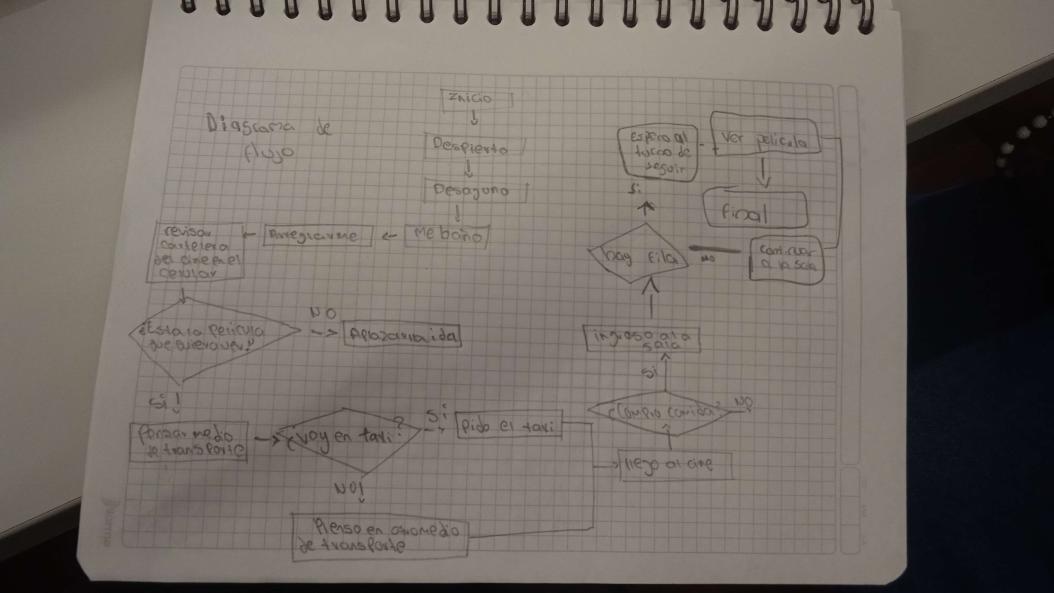 Diagrama de
flujo
Inicio
Despierto
Desayuno
Me baño
Arreglarme
revisar
cartelera
del cine en el
celular
¿Esta la pelicula
que quiero ver?
NO
Aplazar la ida
Si!
Pensar medio
de transporte
¿voy en taxi?
Si
pido el taxi
NO!
Pienso en otro medio
de transporte
llego al cine
¿Compro comida?
NO
Si
ingreso a la
sala
hay fila
NO
continuar
a la sala
Si
espero al
turno de
seguir
ver pelicula
final